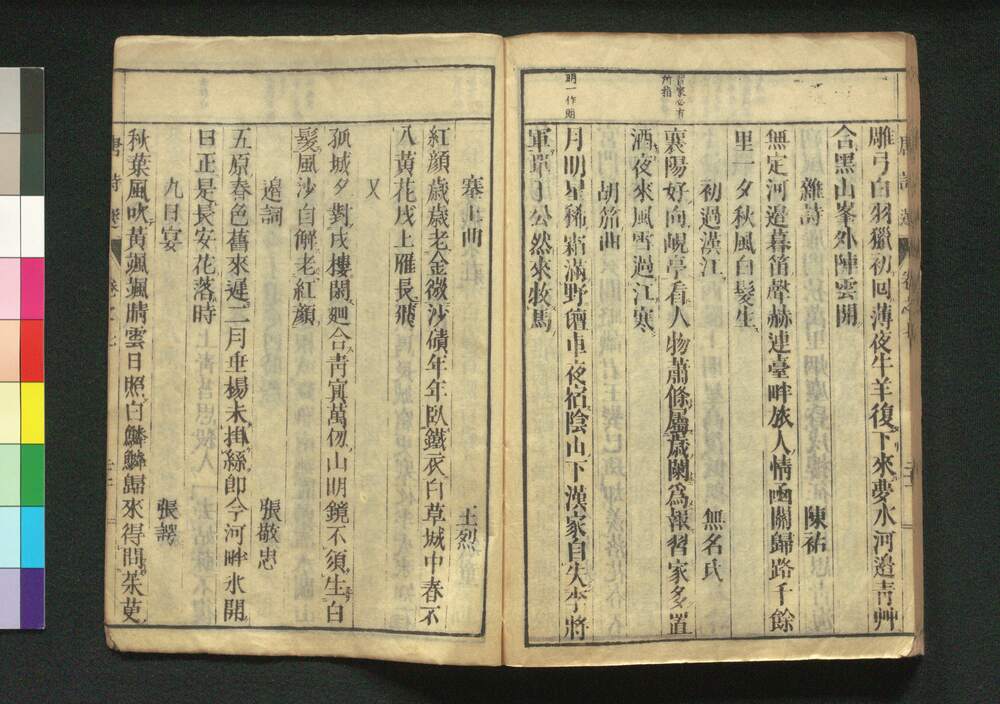 雕弓白羽獵初回薄夜牛羊復下來夢水河邉青艸
合黑山峯外陣雲開
雜詩
陳祐
無定河邉暮笛聲赫連臺畔旅人情函關歸路千餘
里一夕秋風白髮生
初過漢江
無名氏
習家必有
所指
襄陽好向峴亭看人物蕭條屬歳闌為報習家多置
酒夜來風雪過江寒
胡笳曲
明一作朗
月明星稀霜滿野氊車夜宿陰山下漢家自失李將
軍單于公然來牧馬
塞上曲
王烈
紅顔歳歳老金微沙磧年年臥鐵衣白草城中春不
入黄花戍上雁長飛
又
孤城夕對戍樓閑廻合青㝠萬仭山明鏡不須生白
髮風沙自解老紅顔
邉詞
張敬忠
五原春色舊來遲二月垂楊未掛絲即今河畔氷開
日正是長安花落時
九日宴
張諤
秋葉風吹黄颯颯晴雲日照白鱗鱗歸來得問茱萸
唐詩選